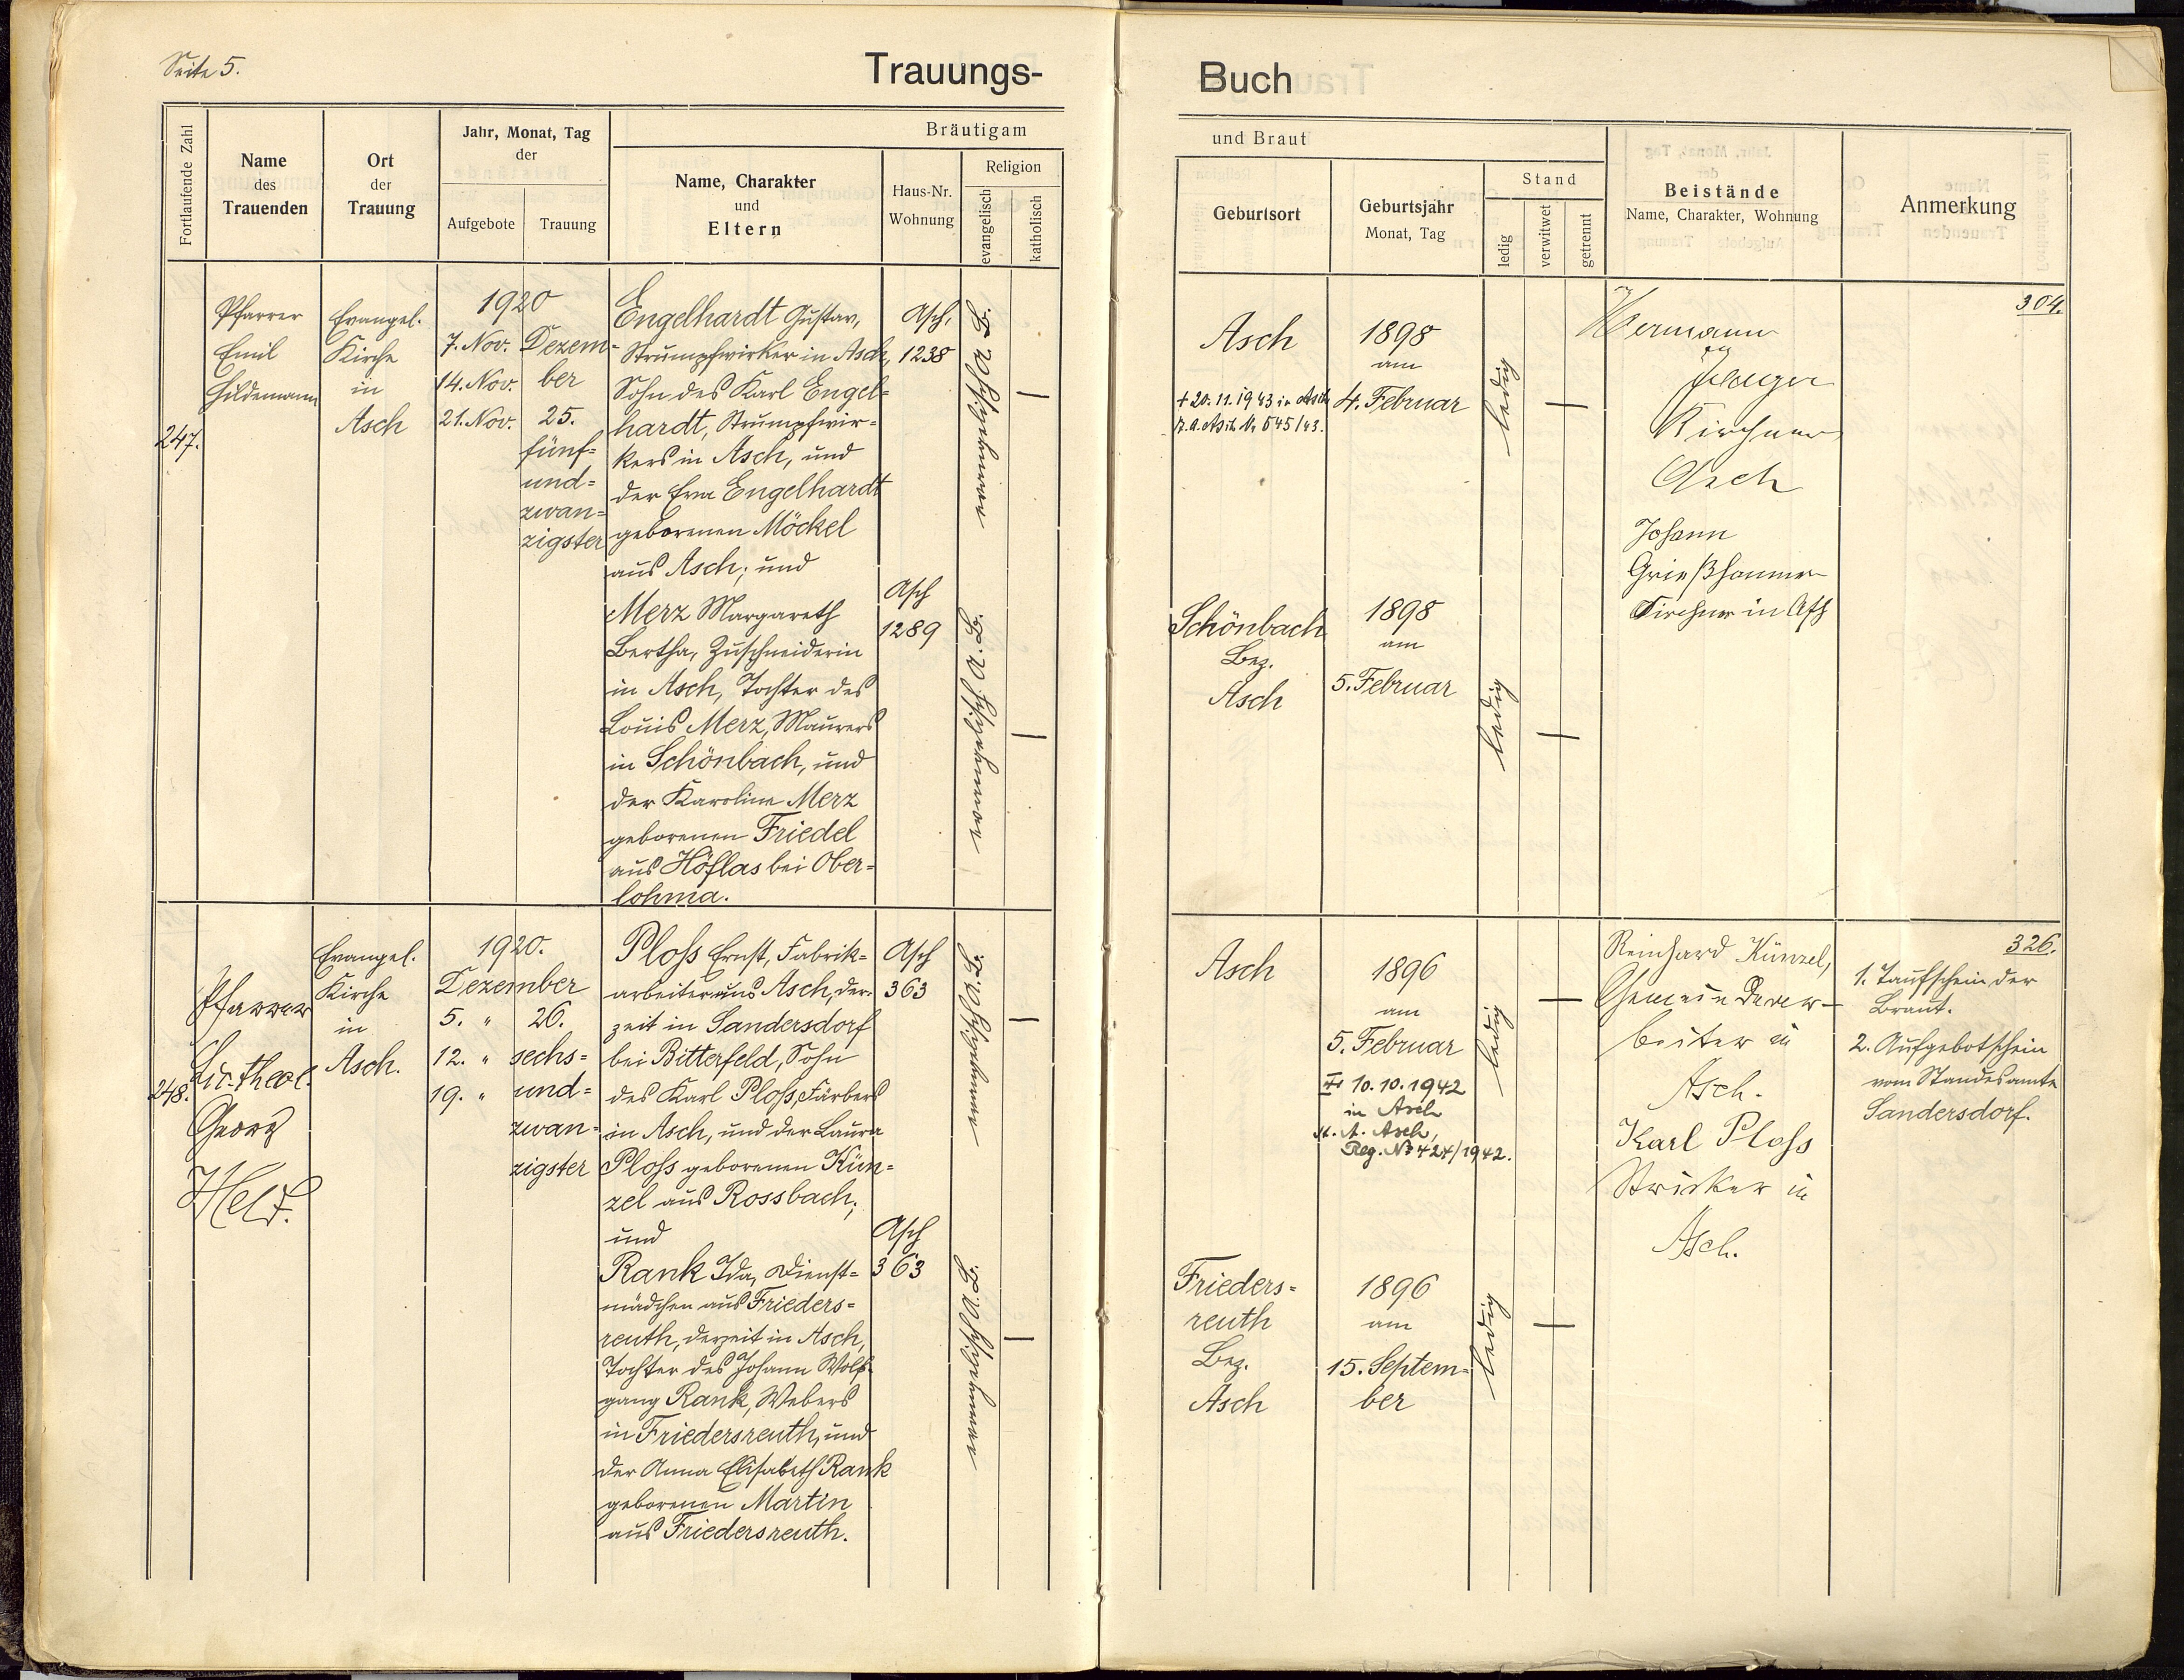 Seite 5.
Trauungs-
Buch
Fortlaufende Zahl
Name
des
Trauenden
Ort
der
Trauung
Jahr, Monat, Tag
der
Aufgebote
Trauung
Bräutigam
Name, Charakter
und
Eltern
Haus-Nr.
Wohnung
Religion
evangelisch
katholisch
und Braut
Geburtsort
Geburtsjahr
Monat, Tag
Stand
ledig
verwitwet
getrennt
Beistände
Name, Charakter, Wohnung
Anmerkung
247.
Pfarrer
Emil
Hildemann
Evangel.
Kirche
in
Asch
1920
7. Nov.
14. Nov.
21. Nov.
Dezem-
ber
25.
fünf-
und-
zwan-
zigster
Engelhardt Gustav,
Strumpfwirker in Asch,
Sohn des Karl Engel-
hardt, Strumpfwir-
kers in Asch, und
der Eva Engelhardt
geborenen Möckel
aus Asch; und
Merz Margareth
Bertha, Zuschneiderin
in Asch, Tochter des
Louis Merz, Maurers
in Schönbach, und
der Karoline Merz
geborenen Friedel
aus Höflas bei Ober-
lohma.
Asch,
1238
Asch
1289
evangelisch A. B.
evangelisch A. B.
Asch
+ 20. 11. 1943 in Asch
St. A. Asch Nr 545/43.
1898
am
4. Februar
ledig
Schönbach
Bez.
Asch
1898
am
5. Februar
ledig
Hermann
Jaeger
Kirchner
Asch
Johann
Grießhammer
Kirchner in Asch
304.
248.
Pfarrer
Lic. theol.
Georg
Held.
Evangel.
Kirche
in
Asch.
1920.
Dezember
5. "
12. "
19. "
26.
sechs-
und-
zwan-
zigster
Ploss Ernst, Fabrik-
arbeiter aus Asch, der-
zeit in Sandersdorf
bei Bitterfeld, Sohn
des Karl Ploss, Färbers
in Asch, und der Laura
Ploss geborenen Kün-
zel aus Rossbach;
und
Rank Ida, Dienst-
mädchen aus Frieders-
reuth, derzeit in Asch,
Tochter des Johann Wolf-
gang Rank, Webers
in Friedersreuth, und
der Anna Elisabeth Rank
geborenen Martin
aus Friedersreuth.
Asch
363
Asch
363
evangelisch A. B.
evangelisch A. B.
Asch
1896
am
5. Februar
10. 10. 1942
in Asch
St. A. Asch,
Reg. No 424/1942.
ledig
Frieders-
reuth
Bez.
Asch
1896
am
15. Septem-
ber
ledig
Reinhard Künzel,
Gemeindear-
beiter in
Asch.
Karl Ploss
Stricker in
Asch.
326.
1. Taufschein der
Braut.
2. Aufgebotschein
vom Standesamte
Sandersdorf.